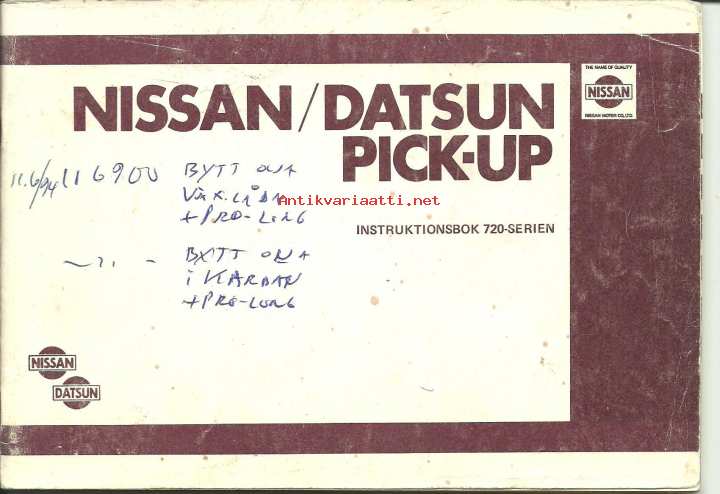 THE NAME OF QUALITY
NISSAN
NISSAN MOTOR CO.,LTD.
NISSAN/DATSUN
PICK-UP
INSTRUKTIONSBOK 720-SERIEN
11.6/94 116900 BYTT OLJA
VÄX.LÅDA
+PRO-LONG
Antikvariaatti.net
— " — BYTT OLJA
i KARDAN
+PRO-LONG
NISSAN
DATSUN